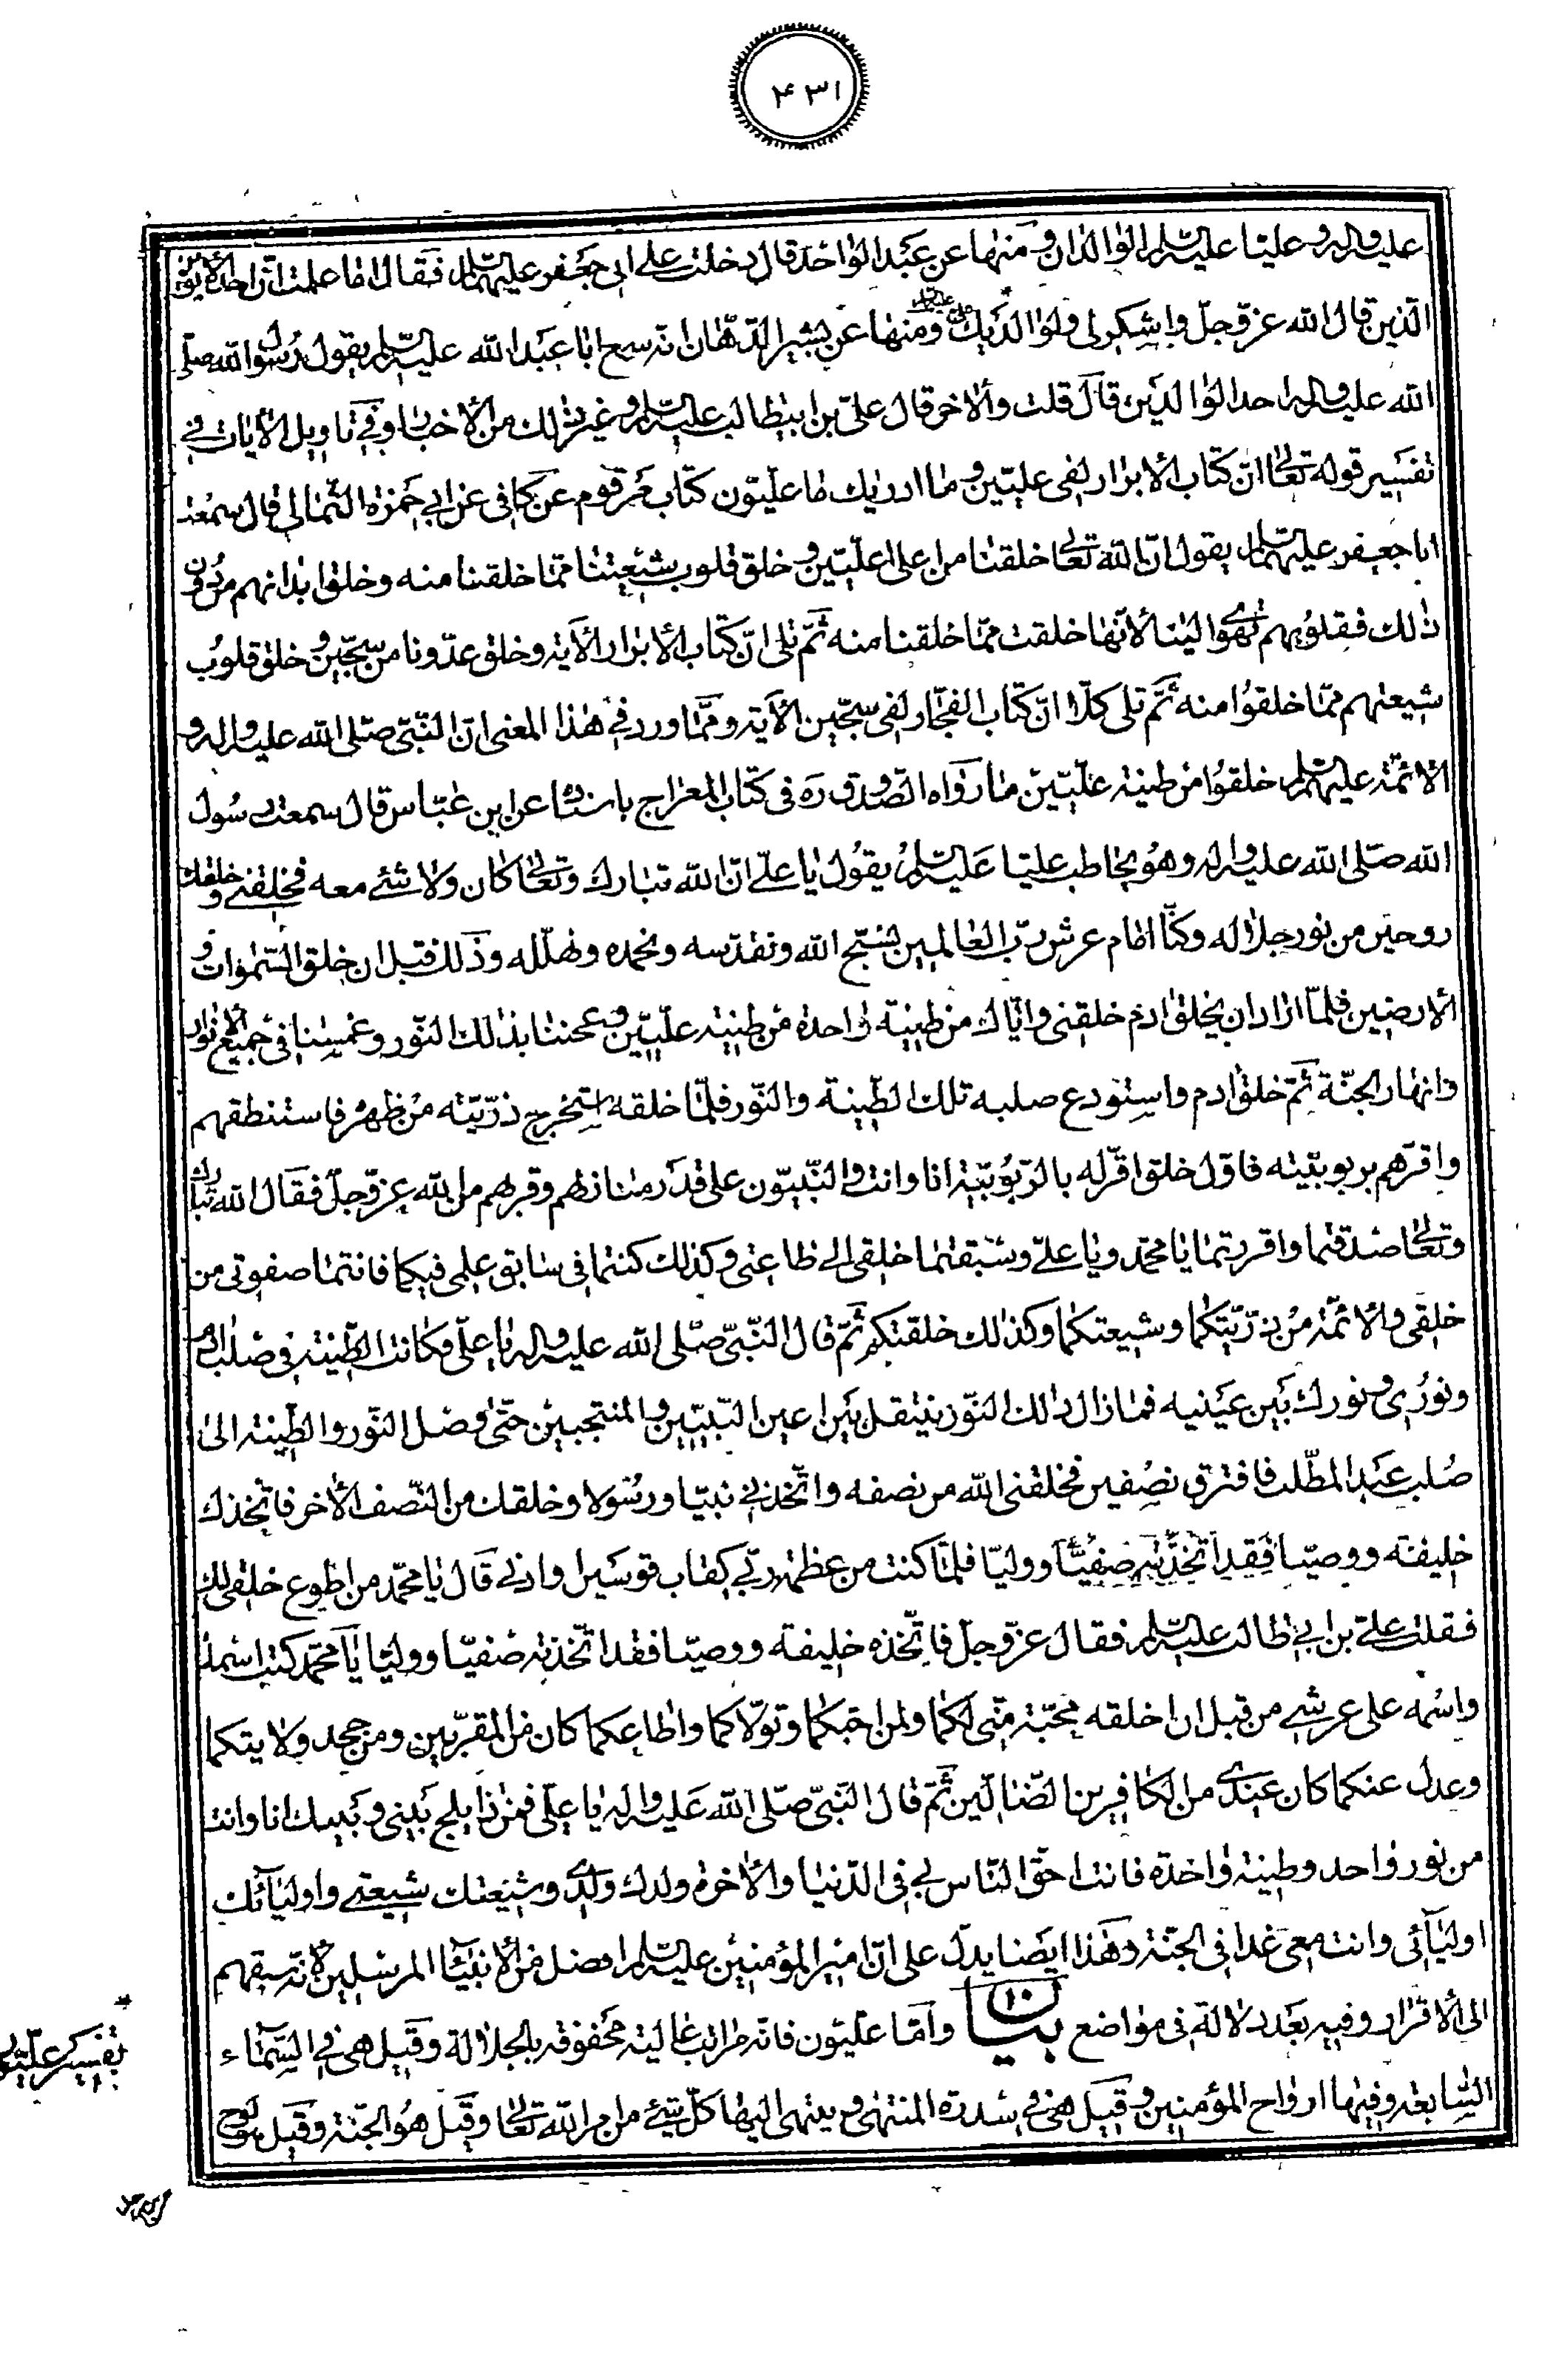 ٤٣١
عليه واله وعليّا عليه السلام الوالدان ومنها عن عبد الواحد قال دخلت على ابي جعفر عليهما السلام فقال اما علمت ان احد الابوين
الذين قال الله عز وجل واشكر لي ولوالديك علي عليه السلام ومنها عن بشير الدّهان انه سمع ابا عبد الله عليه السلام يقول رسول الله صلى
الله عليه واله احد الوالدين قال قلت والاخر قال علي بن ابيطالب عليه السلام وغير ذلك من الاخبار وفي تاويل الايات في
تفسير قوله تعالى انّ كتاب الابرار لفي عليّين وما ادريك ما عليّون كتاب مرقوم عن كافى عن ابي حمزه الثمالى قال سمعت
ابا جعفر عليهما السلام يقول ان الله تعالى خلقنا من اعلى عليّين وخلق قلوب شيعتنا ممّا خلقنا منه وخلق ابدانهم من دون
ذلك فقلوبهم تهوى الينا لانّها خلقت ممّا خلقنا منه ثمّ تلى انّ كتاب الابرار الاية وخلق عدّونا من سجّين وخلق قلوب
شيعتهم ممّا خلقوا منه ثمّ تلى كلّا انّ كتاب الفجّار لفى سجّين الاية وممّا ورد في هذا المعنى انّ النّبى صلى الله عليه واله و
الائمّة عليهم السلام خلقوا من طينة عليّين ما رواه الصّدوق ره فى كتاب المعراج باسناده عن ابن عبّاس قال سمعت رسول
الله صلى الله عليه واله وهو يخاطب عليّا عليه السلام يقول يا علي انّ الله تبارك وتعالى كان ولا شئ معه فخلقني وخلقك
روحين من نور جلاله وكنّا امام عرش ربّ العالمين نسبّح الله ونقدّسه ونحمده ونهلّله وذلك قبل ان خلق السّموات و
الارضين فلمّا اراد ان يخلق ادم خلقنى وايّاك من طينة واحدة من طينة عليّين وعجننا بذلك النّور وغمسنا فى جميع الانوار
وانهار الجنّة ثمّ خلق ادم واستودع صلبه تلك الطّينة والنّور فلمّا خلقه استخرج ذرّيّته من ظهره فاستنطقهم
واقرّهم بربوبيّته فاوّل خلق اقرّ له بالرّبوبيّة انا وانت والنّبيّون على قدر منازلهم وقربهم من الله عز وجلّ فقال الله تبارك
وتعالى صدقتما واقررتما يا محمّد ويا علي وسبقتما خلقى الى طاعتى وكذلك كنتما فى سابق علمى فيكما فانتما صفوتى من
خلقى والائمّة من ذرّيّتكما وشيعتكما وكذلك خلقتكم ثمّ قال النّبيّ صلى الله عليه واله يا علي وكانت الطّينة في صلب ادم
ونوري ونورك بين عينيه فما زال ذلك النّور ينتقل بين اعين النّبيّين والمنتجبين حتّى وصل النّور والطّينة الى
صلب عبد المطّلب فافترق نصفين فخلقنى الله من نصفه واتّخذني نبيّا ورسولا وخلقك من النّصف الاخر فاتّخذك
خليفة ووصيّا فقد اتّخذته صفيّا ووليّا فلمّا كنت من عظمة ربّي كقاب قوسين او ادنى قال يا محمّد من اطوع خلقى لك
فقلت علي بن ابي طالب عليه السلام فقال عز وجلّ فاتّخذه خليفة ووصيّا فقد اتّخذته صفيّا ووليّا يا محمّد كتبت اسمك
واسمه على عرشي من قبل ان اخلقه محبّة منّى لكما ولمن احبّكما وتولّاكما واطاعكما كان من المقرّبين ومن جحد ولايتكما
وعدل عنكما كان عندى من الكافرين الضّالّين ثمّ قال النّبى صلّى الله عليه واله يا علي فمن ذا يلج بينى وبينك انا وانت
من نور واحد وطينة واحدة فانت احقّ النّاس بي فى الدّنيا والاخرة ولدك ولدى وشيعتك شيعتي واوليائك
اوليائى وانت معى غدا فى الجنّة وهذا ايضا يدلّ على انّ امير المؤمنين عليه السلام افضل من الانبياء المرسلين لانّه سبقهم
الى الاقرار وفيه بعد دلالة فى مواضع بيان ١٠ وامّا عليّون فانّه مراتب عالية محفوفه بالجلالة وقيل هى في السّماء
السّابعة وفيها ارواح المؤمنين وقيل هى في سدرة المنتهى وينتهى اليها كلّ شئ من امر الله تعالى وقيل هو الجنّة وقيل هو لوح
تفسير عليّين